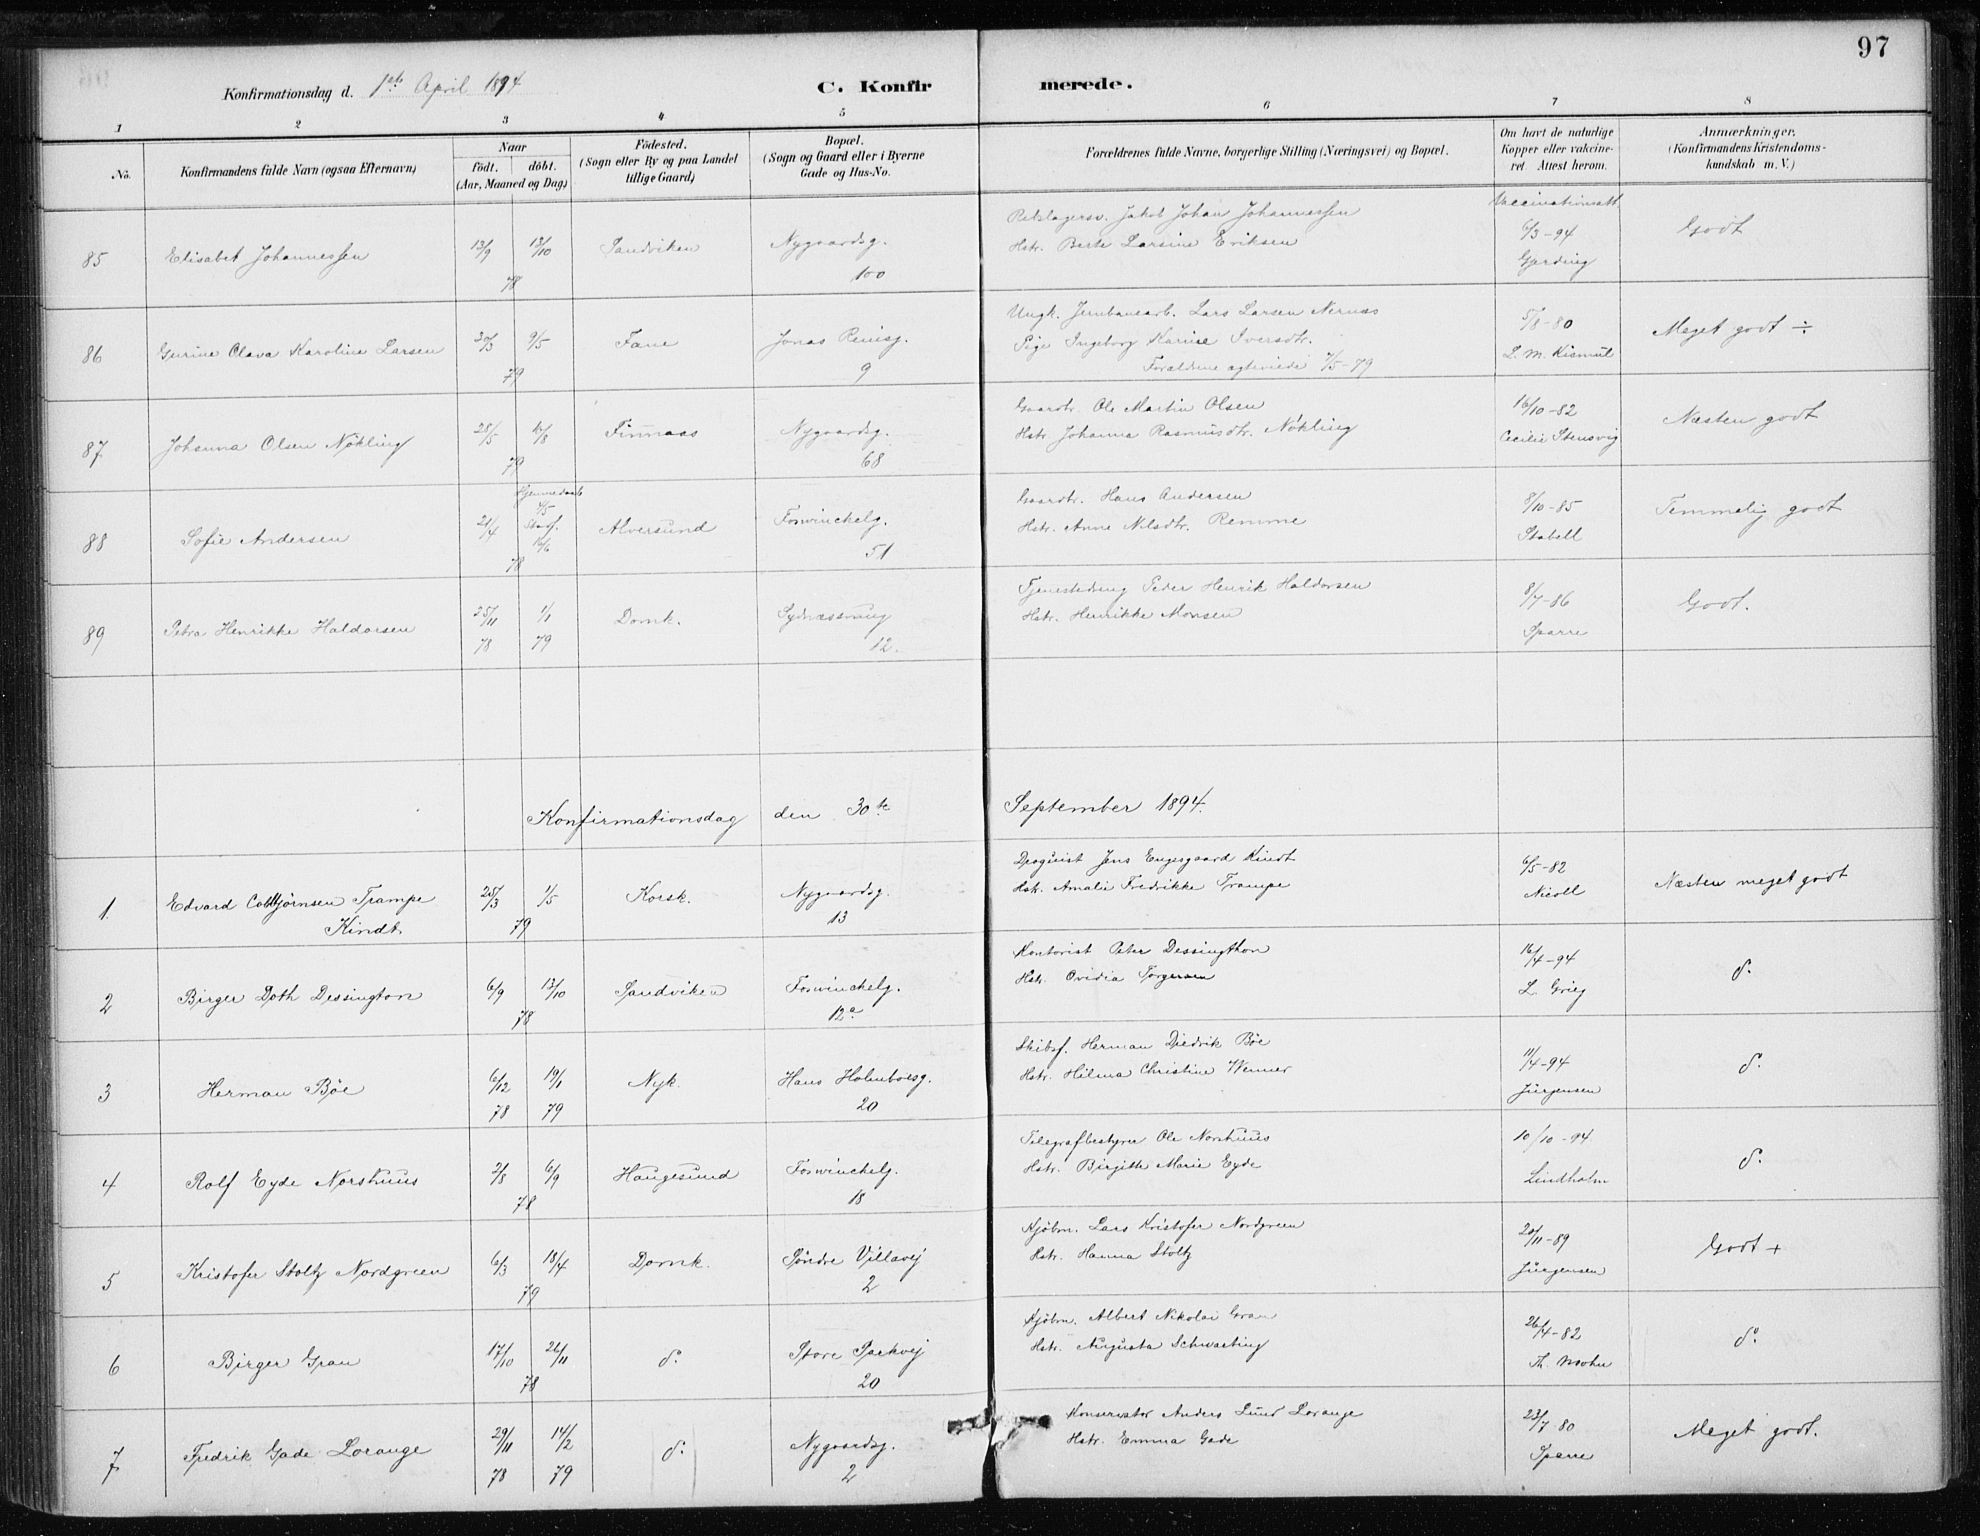 97
Konfirmationsdag d. 1ste April 1894
C. Konfirmerede.
1 2 3 4 5 6 7 8
No.
Konfirmandens fulde Navn (ogsaa Efternavn)
Naar
født. døbt.
(Aar, Maaned og Dag)
Födested.
(Sogn eller By og paa Landet
tillige Gaard)
Bopæl.
(Sogn og Gaard eller i Byerne
Gade og Hus-No.
Forældrenes fulde Navne, borgerlige Stilling (Næringsvei) og Bopæl.
Om havt de naturlige
Kopper eller vakcine-
ret. Attest herom.
Anmærkninger.
(Konfirmandens Kristendoms-
kundskab m. V.)
85 Elisabet Johannessen 13/9 13/10 78 Sandviken Nygaardsg. 100
Jakob Johan Johannessen
Hstr. Berte Larsine Eriksen
Vaccinationsatt. 6/3-94 Gjerding
Godt
86 Gurine Olava Karoline Larsen 9/5 79 Fane Jonas Reinsg. 9
Ungk. Jernbanearb. Lars Larsen Nernæs
Pige Ingeborg Karine Iversdtr.
Forældrene ægteviede 7/5-79
5/8-80 L. M. Kismul
Meget godt ÷
87 Johanna Olsen Nökling 28/5 79 Finnaas Nygaardsg. 68
Gaardbr. Ole Martin Olsen
Hstr. Johanna Rasmusdtr. Nökling
16/10-82 Cecilie Stensvig
Næsten godt
88 Sofie Andersen 21/4 Hjemmedøbt 4/5 Stadf. 16/6 78 Alversund Fosvinckelg. 51
Gaardbr. Hans Andersen
Hstr. Anne Nilsdtr. Remme
8/10-85 Stabell
Temmelig godt
89 Petra Henrikke Haldorsen 25/11 78 1/1 79 Domk. Sydnæssmug 12.
Tjenestedreng Peder Henrik Haldorsen
Hstr. Henrikke Monsen
8/7-86 Sparre
Godt.
Konfirmationsdag den 30te September 1894.
1. Edvard Colbjörnsen Trampe Kindt. 25/3 1/5 79 Korsk. Nygaardsg. 13
Droguist Jens Engesgaard Kindt
Hstr. Amalie Fredrikke Trampe
6/5-82 Nicoll
Næsten meget godt
2 Birger Doth Dessington 6/9 13/10 78 Sandviken Fosvinckelg. 12a
Kontorist Peter Dessingthon
Hstr. Ovidia Torgersen
16/4-94 L. Grieg
do.
3 Herman Böe 6/12 78 19/1 79 Nyk. Hans Holmboesg. 20
Skibsf. Herman Diedrik Böe
Hstr. Hilma Christine Wenner
11/4-94 Jürgensen
do.
4 Rolf Eyde Norshuus 2/8 6/9 78 Haugesund Fosvinckelg. 18
Telegrafbestyrer Ole Norshuus
Hstr. Birgitte Marie Eyde
10/10-94 Lindholm
do.
5 Kristofer Stoltz Nordgreen 6/3 18/4 79 Domk. Söndre Villavej 2
Kjöbm. Lars Kristofer Nordgreen
Hstr. Hanna Stoltz
20/11-89 Jürgensen
Godt +
6 Birger Gran 17/10 26/11 78 do. Store Parkvej 20
Kjöbm. Albert Nikolai Gran
Hstr. Augusta Schwarting
26/4-82 Th. Mohn
do.
7 Fredrik Gade Lorange 29/11 78 14/2 79 do. Nygaardsg. 2
Konservator Anders Lund Lorange
Hstr. Emma Gade
23/7 80 Sparre
Meget godt.